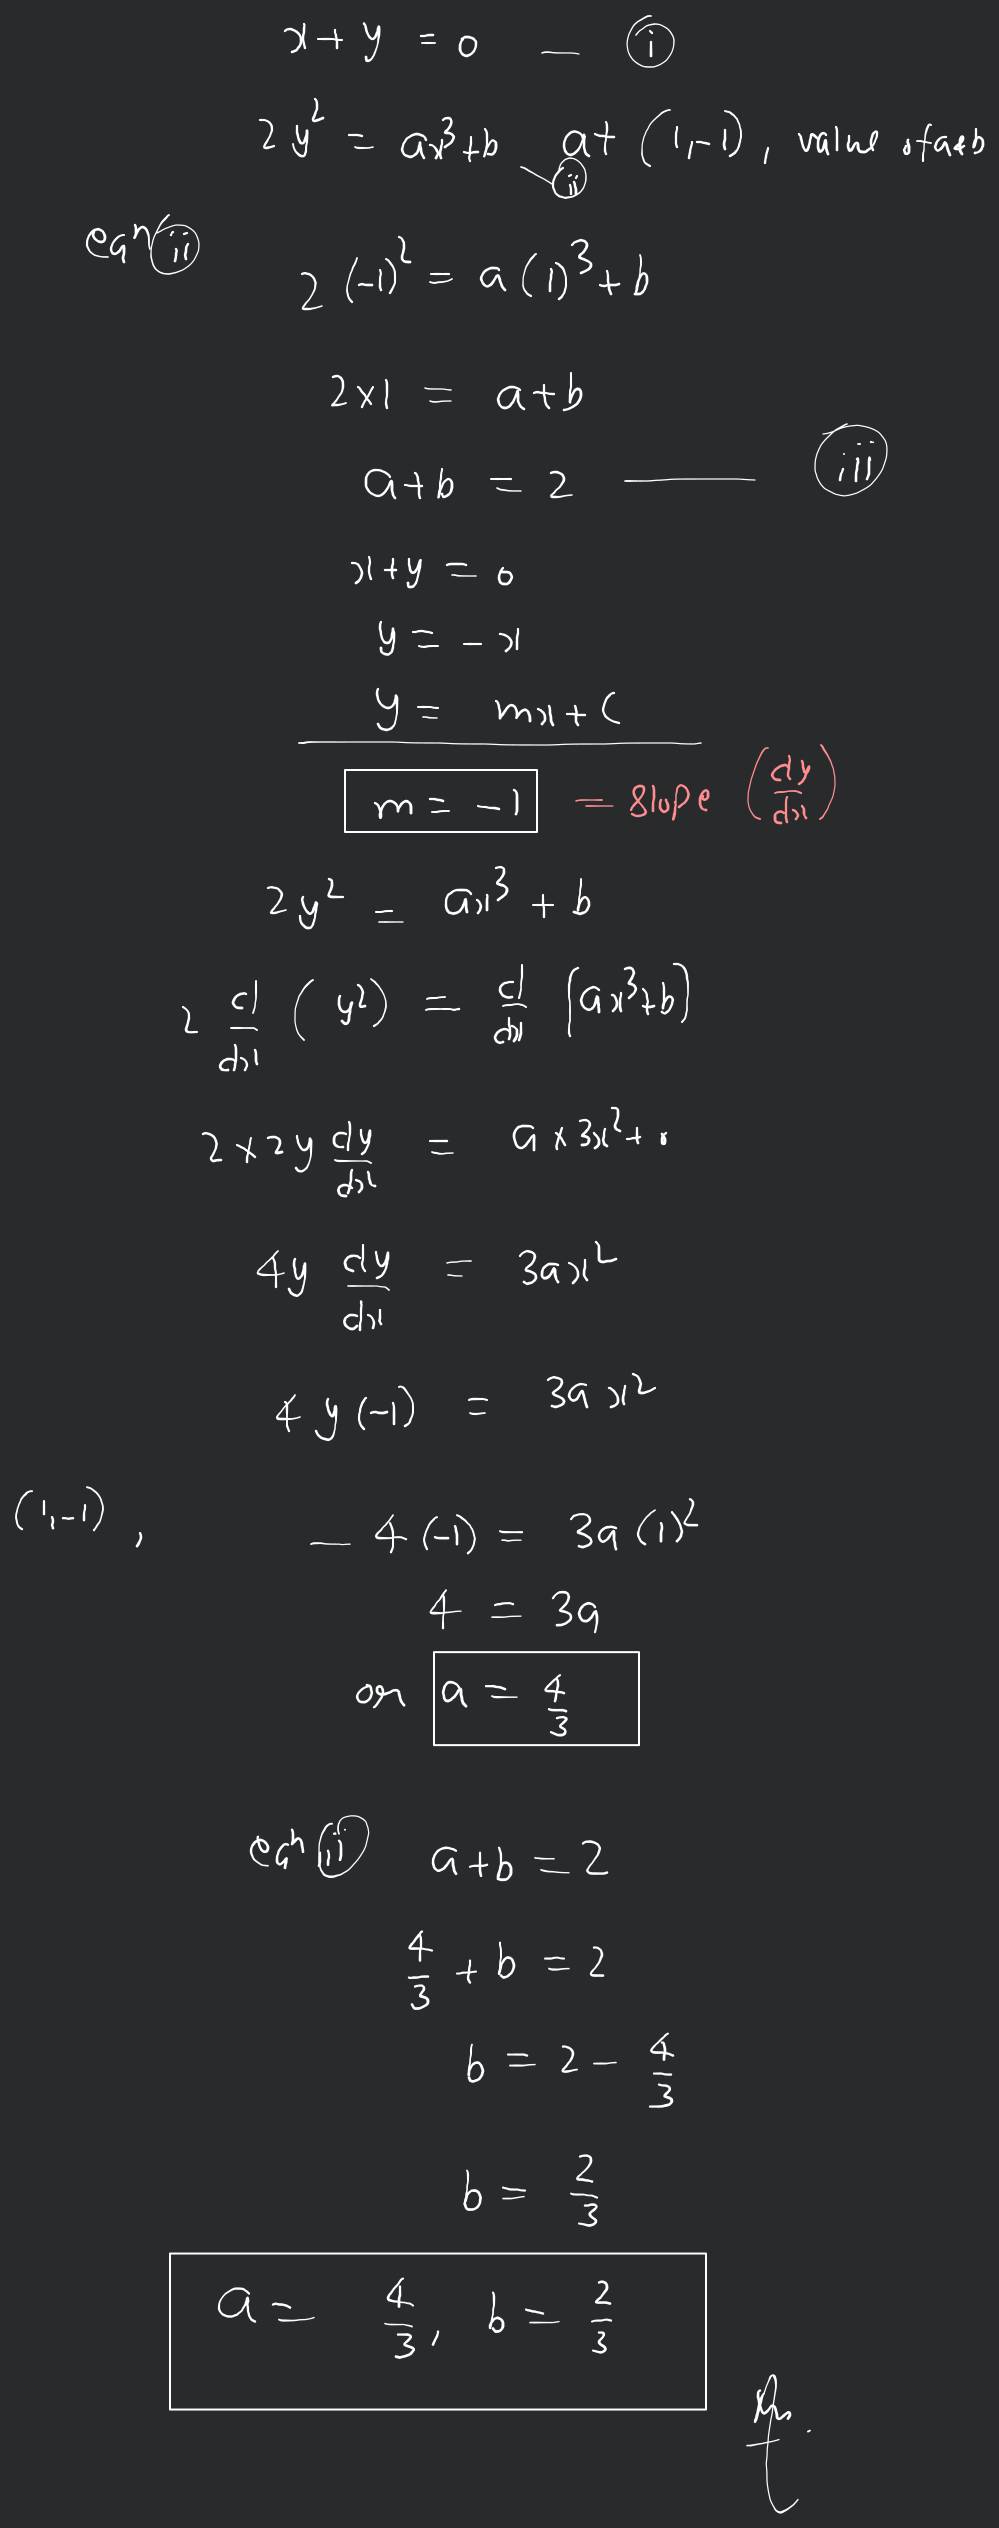 x + y = 0 — (i)
2y² = ax³+b — (ii) at (1,-1), value of a & b
eqⁿ (ii)
2(-1)² = a(1)³ + b
2×1 = a+b
a+b = 2 —— (iii)
x+y = 0
y = -x
y = mx + c
m = -1 = slope (dy/dx)
2y² = ax³ + b
2 d/dx (y²) = d/dx [ax³+b]
2 × 2y dy/dx = a × 3x² + 0
4y dy/dx = 3ax²
4y(-1) = 3ax²
(1,-1), -4(-1) = 3a(1)²
4 = 3a
or a = 4/3
eqⁿ (ii) a+b = 2
4/3 + b = 2
b = 2 - 4/3
b = 2/3
a = 4/3, b = 2/3